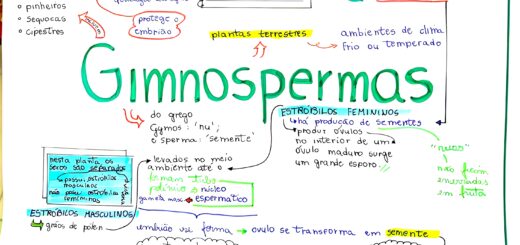 pinheiros
sequoias
ciprestes
protege o
embrião
plantas terrestres
ambientes de clima
frio ou temperado
Gimnospermas
do grego
Gymos: 'nu';
e sperma: 'semente'
ESTRÓBILOS FEMININOS
há produção de sementes
produz óvulos
no interior de um
óvulo maduro surge
um grande esporo
"nuas"
não ficam
encerradas
em fruto
levados no meio
ambiente até o
nesta planta os
sexos são separados
possui estróbilos
masculinos
não possui estróbilos
femininos
núcleo
espermático
gameta masc
ESTRÓBILOS MASCULINOS
grãos de pólen
embrião
forma
óvulo se transforma em semente